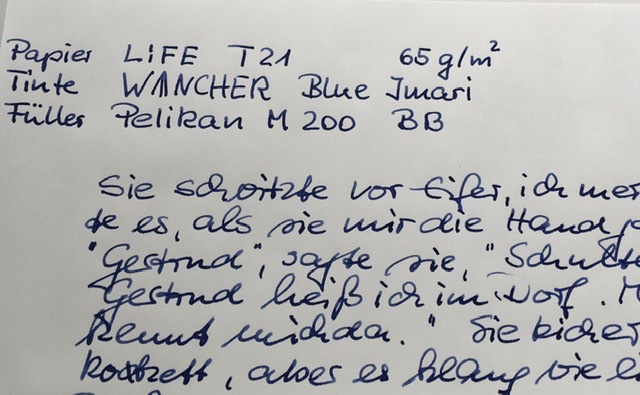 Papier LIFE T21 65 g/m²
Tinte WANCHER Blue Imari
Füller Pelikan M 200 BB
Sie schwitzte vor Eifer, ich mer
te es, als sie mir die Hand g
"Gertrud", sagte sie, "Schulte
Gertrud heiß ich im Dorf. M
kennt mich da." Sie kicher
kokett, aber es klang wie e